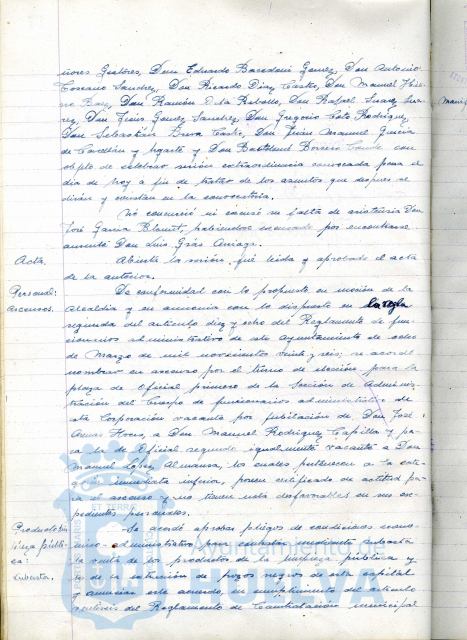 ñores Gestores, Don Eduardo Bacedoni Gomez, Don Antonio
Toscano Sanchez, Don Ricardo Diaz Castro, Don Manuel
Don Ramón de la Don Rafael Suarez
rez, Don Jesús Gomez Sanchez, Don Gregorio Coto Rodriguez,
Don Sebastián Castro, Don Juan Manuel Garcia
de y Ugarte y Don Borrero con
objeto de celebrar sesión extraordinaria convocada para el
dia de hoy a fin de tratar de los asuntos que despues se
dirán y constan en la convocatoria.
No concurrió ni excusó su falta de asistencia Don
José Garcia habiendose excusado por encontrarse
ausente Don Luis
Acta.
Abierta la sesión, fué leida y aprobada el acta
de la anterior.
Personal:
ascensos.
De conformidad con lo propuesto en moción de la
Alcaldia y en armonia con lo dispuesto en la regla
segunda del articulo diez y ocho del Reglamento de fun-
cionarios administrativos de este Ayuntamiento de ocho
de Marzo de mil novecientos veinte y seis; se acordó
nombrar en ascenso por el turno de elección, para la
plaza de Oficial primero de la Sección de Adminis-
tración del Cuerpo de funcionarios administrativos de
esta Corporación vacante por jubilación de Don José
a Don Manuel Rodriguez Capilla y pa-
ra la de Oficial segundo igualmente vacante a Don
Manuel Lopez Almansa, los cuales pertenecen a la cate-
goria inmediata inferior, poseen certificado de aptitud pa-
ra el ascenso y no tienen nota desfavorable en sus ex-
pedientes personales.
Productos
limpieza públi-
ca:
subasta.
Se acordó aprobar pliegos de condiciones econó-
mico-administrativas para contratar mediante subasta
la venta de los productos de la limpieza pública y
la de la extracción de pozos negros de esta capital
y anunciar este acuerdo, en cumplimiento del articulo
veintiseis del Reglamento de Contratación municipal
Ayuntamiento de
HUELVA